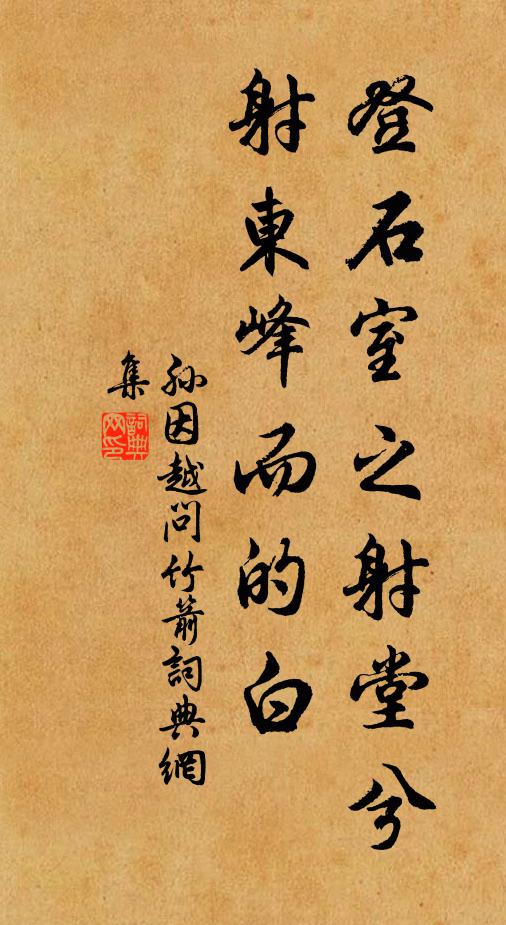 登石室之射堂兮
射東峰而的白
孙因越问竹箭詞典網
集
詞典网印